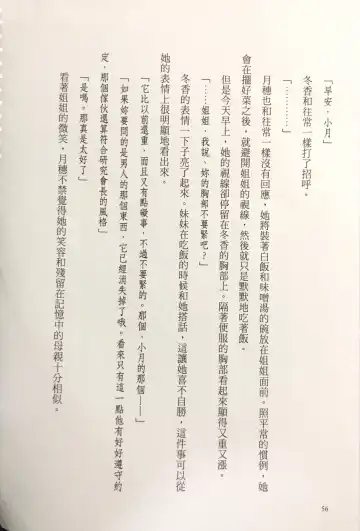 「早安，小月」
冬香和往常一樣打了招呼。
「…………」
月穗也和往常一樣沒有回應，她將裝著白飯和味噌湯的碗放在姐姐面前。照平常的慣例，她
會在擺好菜之後，就避開姐姐的視線，然後就只是默默地吃著飯。
但是今天早上，她的視線卻停留在冬香的胸部上。隔著便服的胸部看起來顯得又重又漲。
「……姐姐，我說，妳的胸部不要緊吧？」
冬香的表情一下子亮了起來。妹妹在吃飯的時候和她搭話，這讓她喜不自勝，這件事可以從
她的表情上很明顯地看出來。
「它比以前還重，而且又有點礙事，不過不要緊的。那個，小月的那個——」
「如果妳要問的是男人的那個東西，它已經消失掉了哦。看來只有這一點他有好好遵守約
定，那個傢伙還算符合研究會長的風格」
「是嗎。那真是太好了」
看著姐姐的微笑，月穗不禁覺得她的笑容和殘留在記憶中的母親十分相似。
56